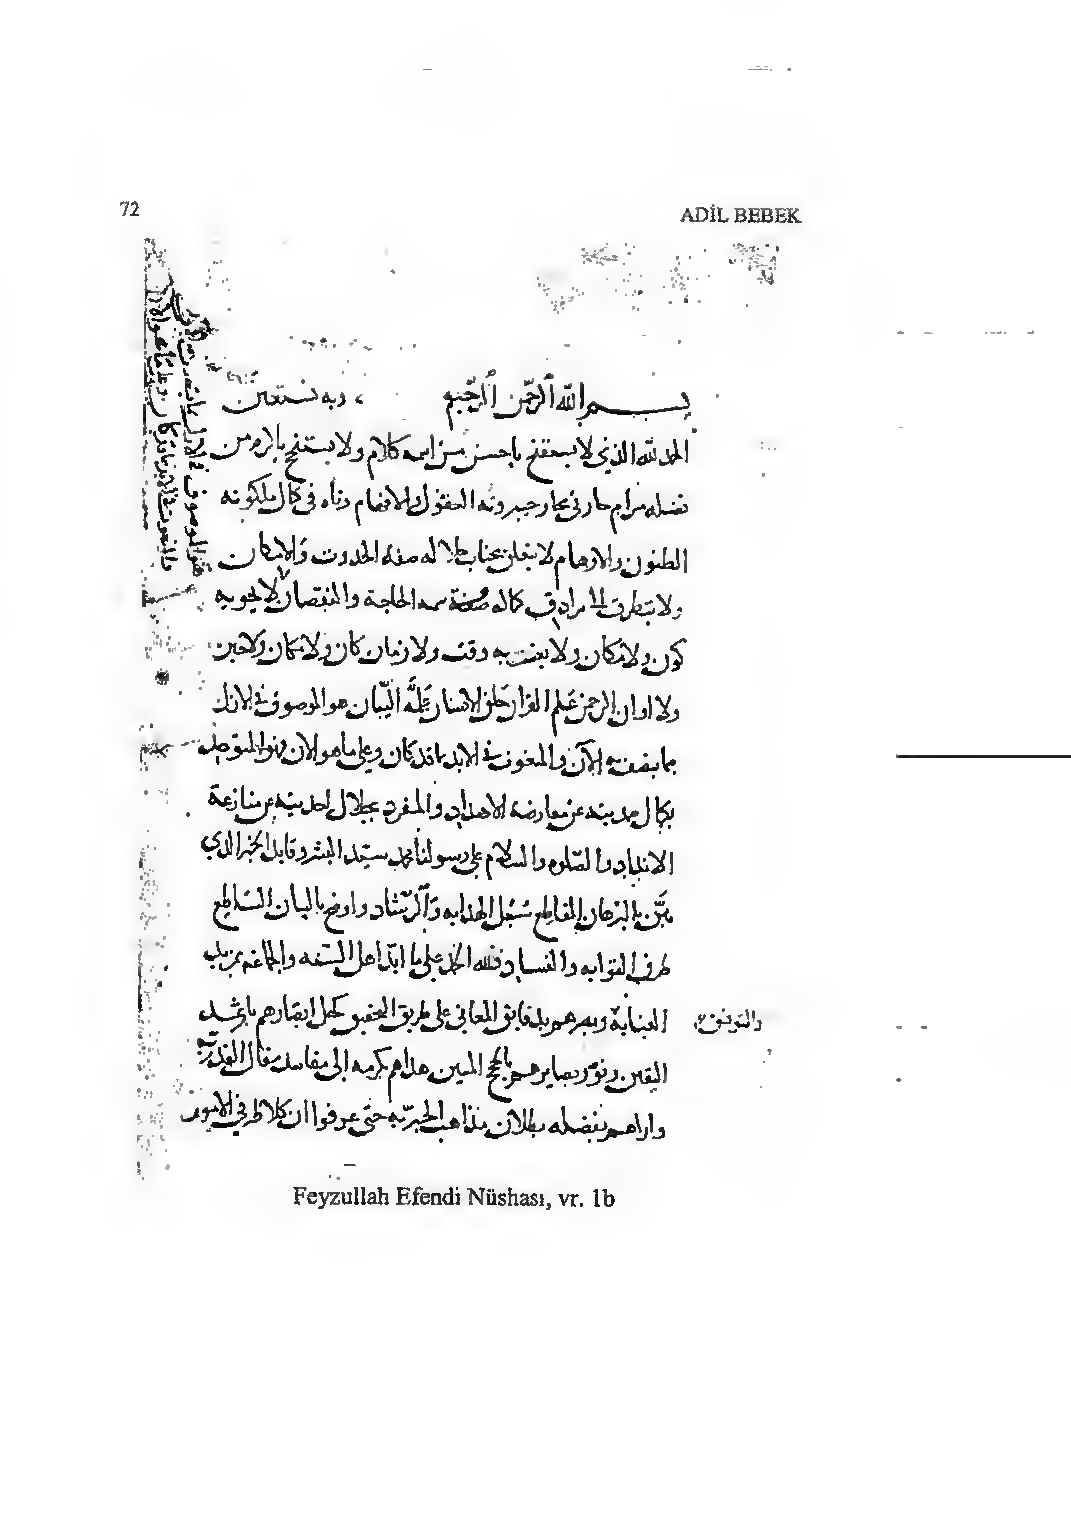 72
ADİL BEBEK
بسم الله الرحمن الرحيم وبه نستعين
الحمد لله الذي لا يستفتح باحسن من اسمه كلام ولا يستنجح باكرم من
مرام حار في بحار جبروته العقول والافهام وتاه في كمال ملكوته
الظنون والاوهام لا يتعلق بجناب جلاله صفة الحدوث والامكان
ولا يتطرق الى سرادق كماله سمة الحاجة والنقصان لا يحويه
كون ولا مكان ولا بعت به وقت ولا زمان كان ولا مكان ولا حين
ولا اوان الرحمن علم القران خلق الانسان علمه البيان هو الموصوف في الازل
بما يصف به الآن والمنعوت في الابد بما قد كان وعلى ما هو الآن وهو المتوحد
بكمال صمديته عن معارضة الاضداد والمتفرد بجلال احديته عن منازعة
الانداد والصلوة والسلام على رسولنا محمد سيد البشر وقايد الخير الذي
بين بالبرهان القاطع سبل الهداية والرشاد واوضح بالبيان الساطع
طرق الغواية والفساد فلله الحمد على ما ايد اهل السنة والجماعة بمزيد
العناية وبصرهم بدقايق المعاني على طريق التحقيق كحل ابصارهم باثمد
والتوفيق
اليقين ونور بصايرهم بالحج المبين هداهم بكرمه الى مفاسد مقال القدرية
واراهم بفضله بطلان مذاهب الجبرية حتى عرفوا ان كلا طرفي الامور
Feyzullah Efendi Nüshası, vr. 1b